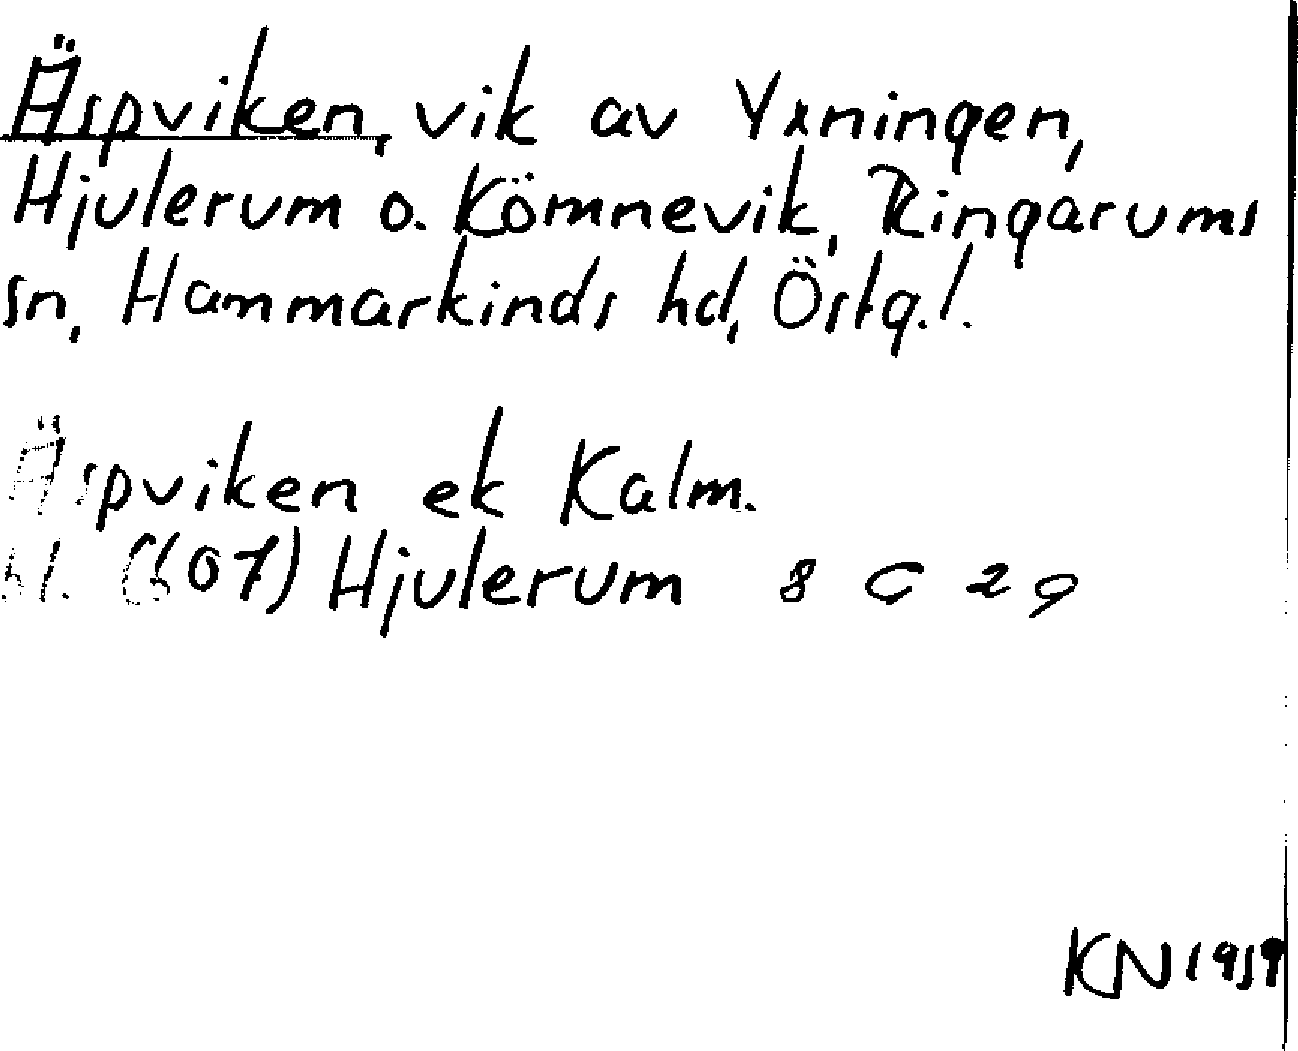 Äspviken, vik av Yxningen,
Hjulerum o. Kömnevik, Ringarums
sn, Hammarkinds hd, Östg.l.
Äspviken ek Kalm.
bl. (607) Hjulerum 8 G 2g
KN 1959